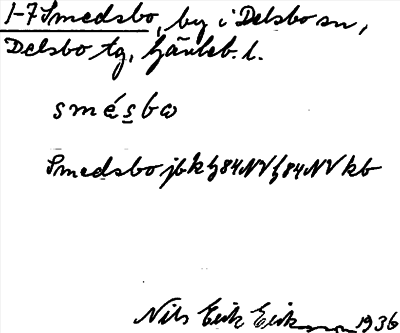 1-7 Smedsbo, by i Delsbo sn,
Delsbo tg, Gävleb. l.
smésbω
Smedsbo jbk h84NV h84NV kb
Nils Erik Eriksson 1936